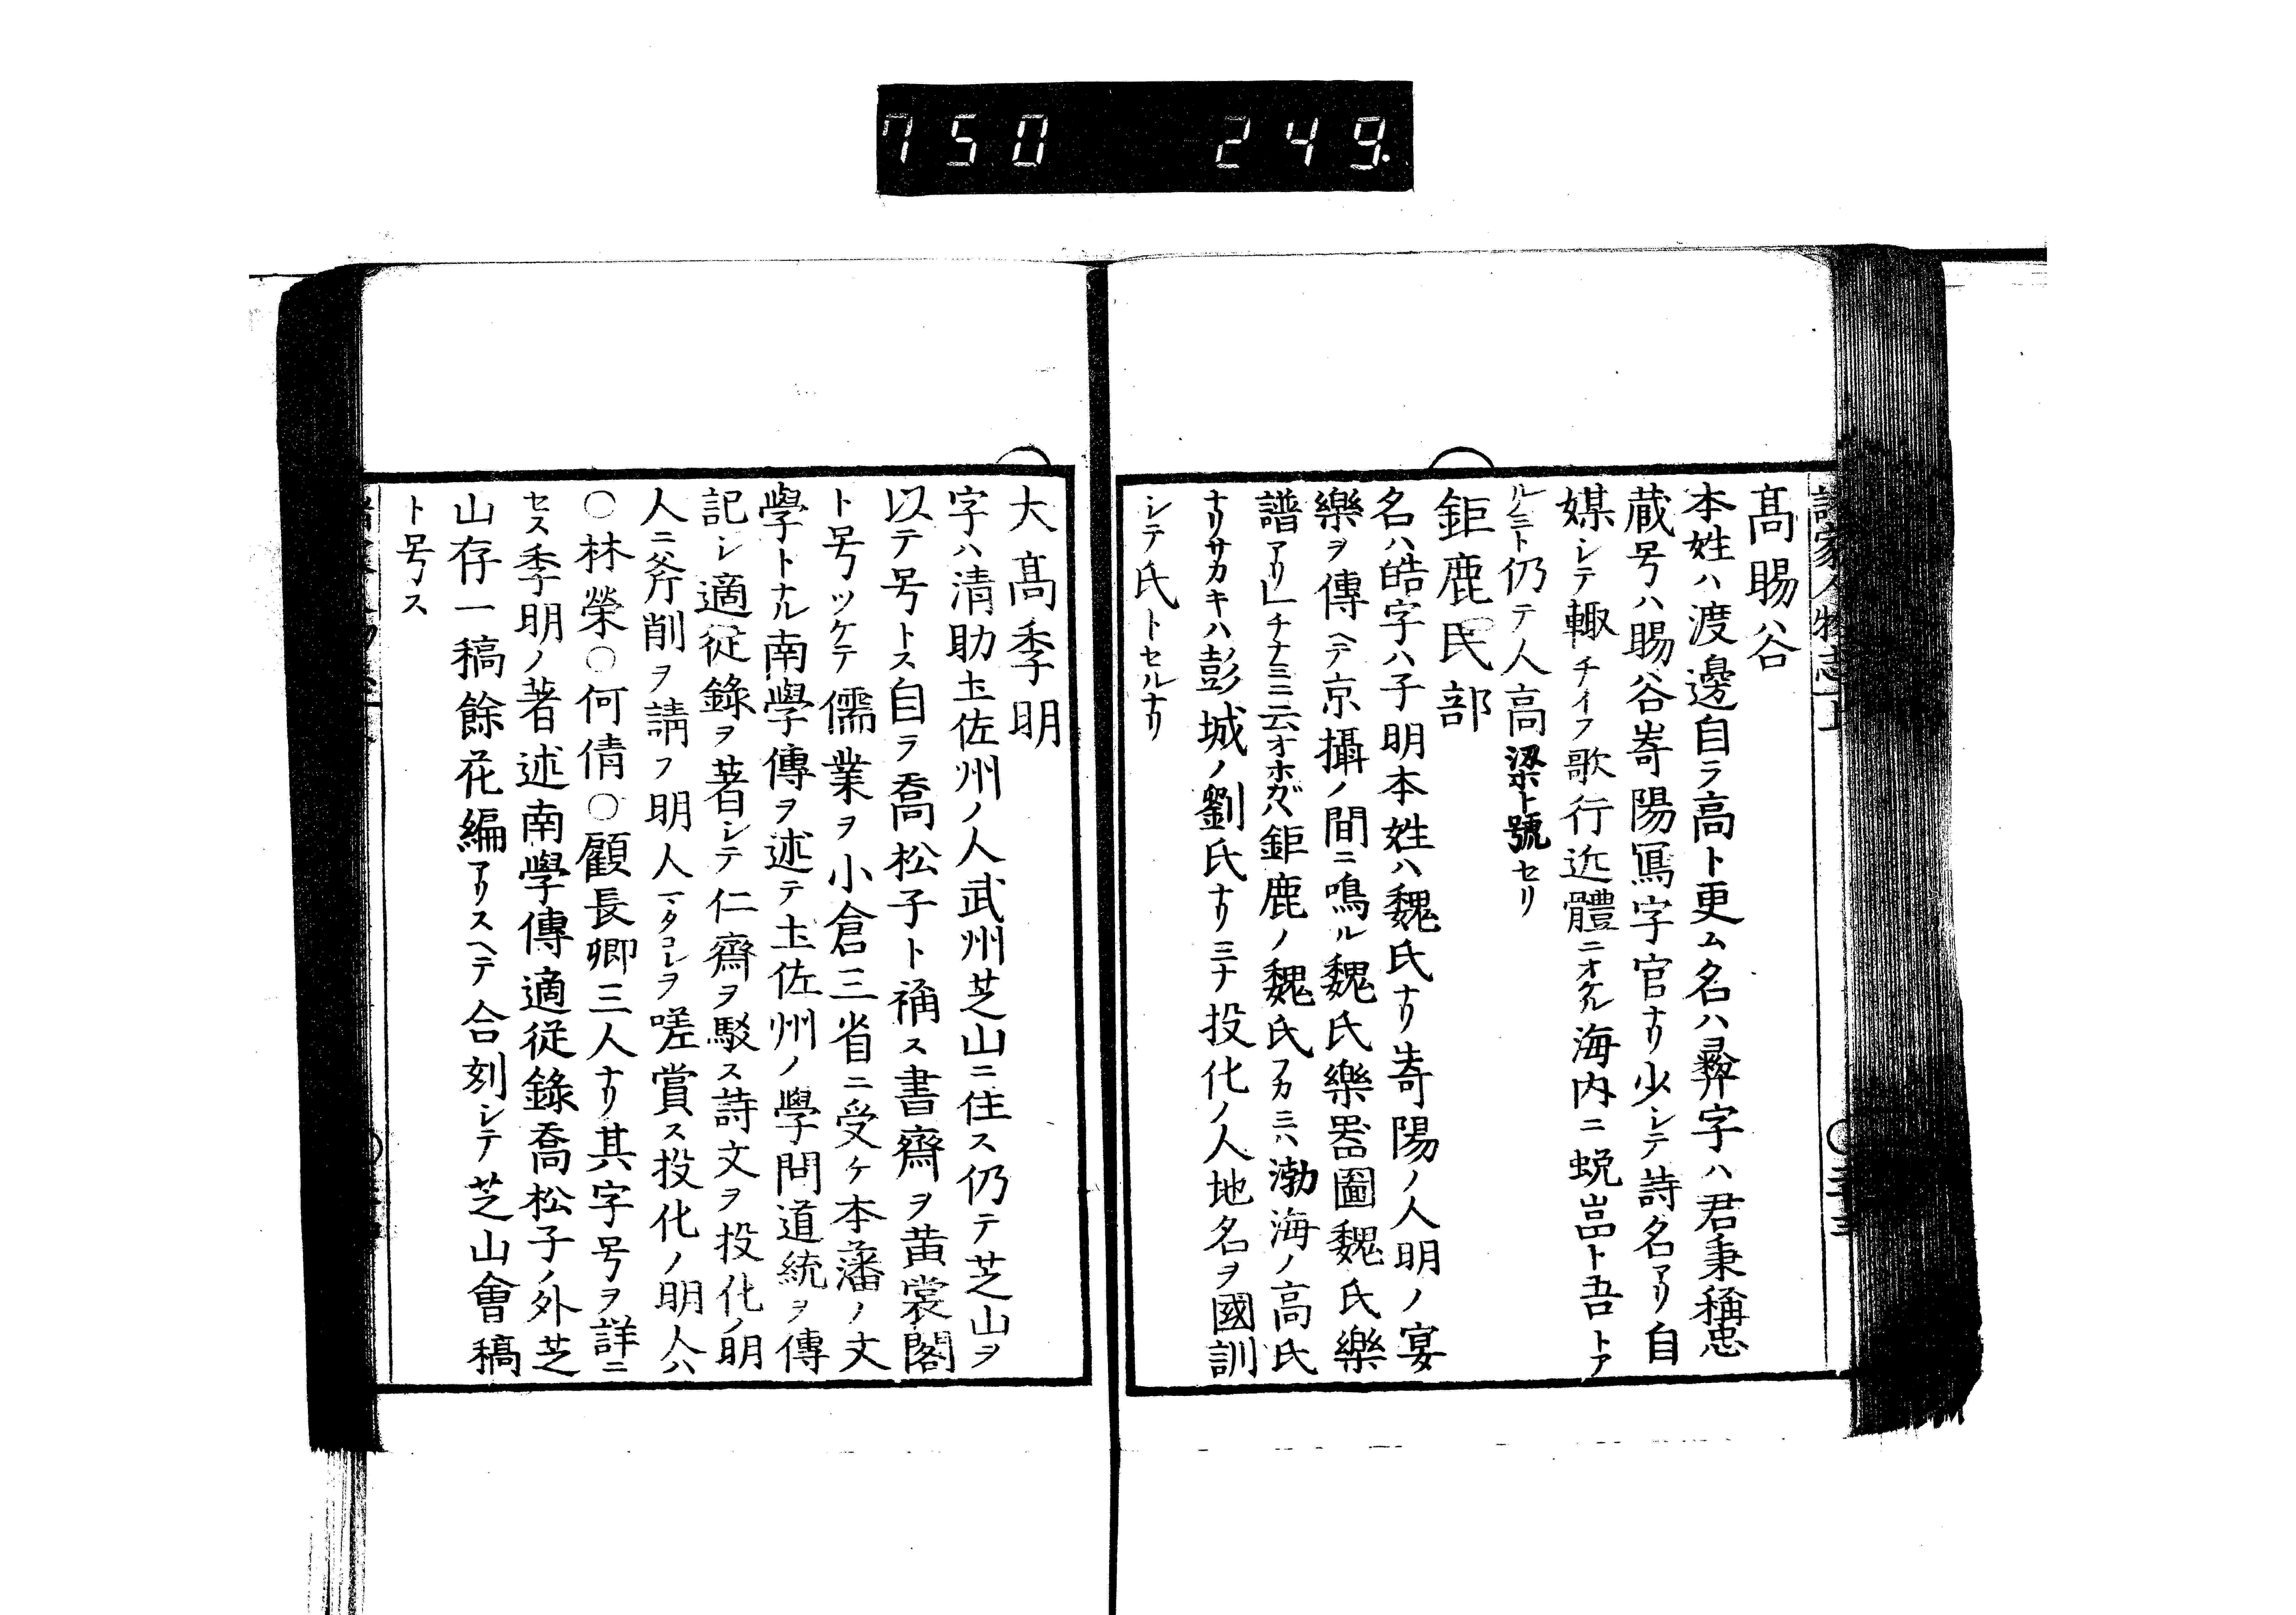 750 249.
髙暘谷
本姓ハ渡邊自ラ高ト更ム名ハ彛字ハ君秉稱忠
蔵号ハ暘谷嵜陽冩字官ナリ少シテ詩名アリ自
媒シテ輙チイフ歌行近體ニオケル海内ニ蛻嵓ト吾トア
ルノミト仍テ人高梁ト號セリ
鉅鹿民部
名ハ皓字ハ子明本姓ハ魏氏ナリ嵜陽ノ人明ノ宴
樂ヲ傳ヘテ京攝ノ間ニ鳴ル魏氏樂噐圖魏氏樂
譜アリ チナミニ云オホガハ鉅鹿ノ魏氏フカミハ渤海ノ高氏
ナリサカキハ彭城ノ劉氏ナリミナ投化ノ人地名ヲ國訓
シテ氏トセルナリ
大髙季明
字ハ清助土佐州ノ人武州芝山ニ住ス仍テ芝山ヲ
以テ号トス自ラ喬松子ト稱ス書齋ヲ黄裳閣
ト号ツケテ儒業ヲ小倉三省ニ受ケ本藩ノ文
學トナル南學傳ヲ述テ土佐州ノ學問道統ヲ傳
記シ適從錄ヲ著シテ仁齋ヲ駁ス詩文ヲ投化ノ明
人ニ斧削ヲ請フ明人マタコレヲ嗟賞ス投化ノ明人ハ
○林榮○何倩○顧長卿三人ナリ其字号ヲ詳ニ
セス季明ノ著述南學傳適從錄喬松子ノ外芝
山存一稿餘花編アリスヘテ合刻シテ芝山會稿
ト号ス